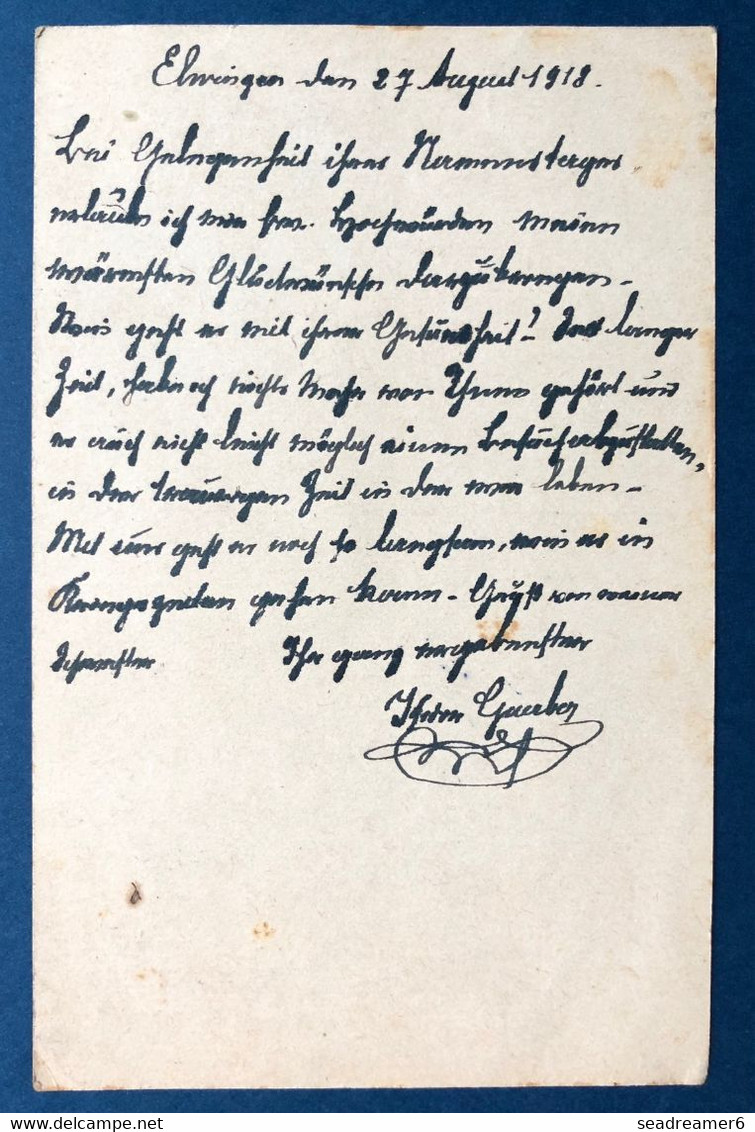 Elvingen den 27 August 1918.
Bei Gelegenheit ihres Nammenstages
erlaube ich mir Hochwürden meine
wärmsten Glückwünsche darzubringen -
Wie geht es mit ihrer Gesundheit? Seit langer
Zeit, habe ich nichts mehr von Ihnen gehört und
es auch nicht leicht möglich einen Besuch abzustatten,
in der traurigen Zeit in der wir leben -
Mit uns geht es noch so langsam, wie es in
Kriegszeiten gehen kann - Gruß von meiner
Schwester Ihr ganz ergebenster
delcampe.net
seadreamer6